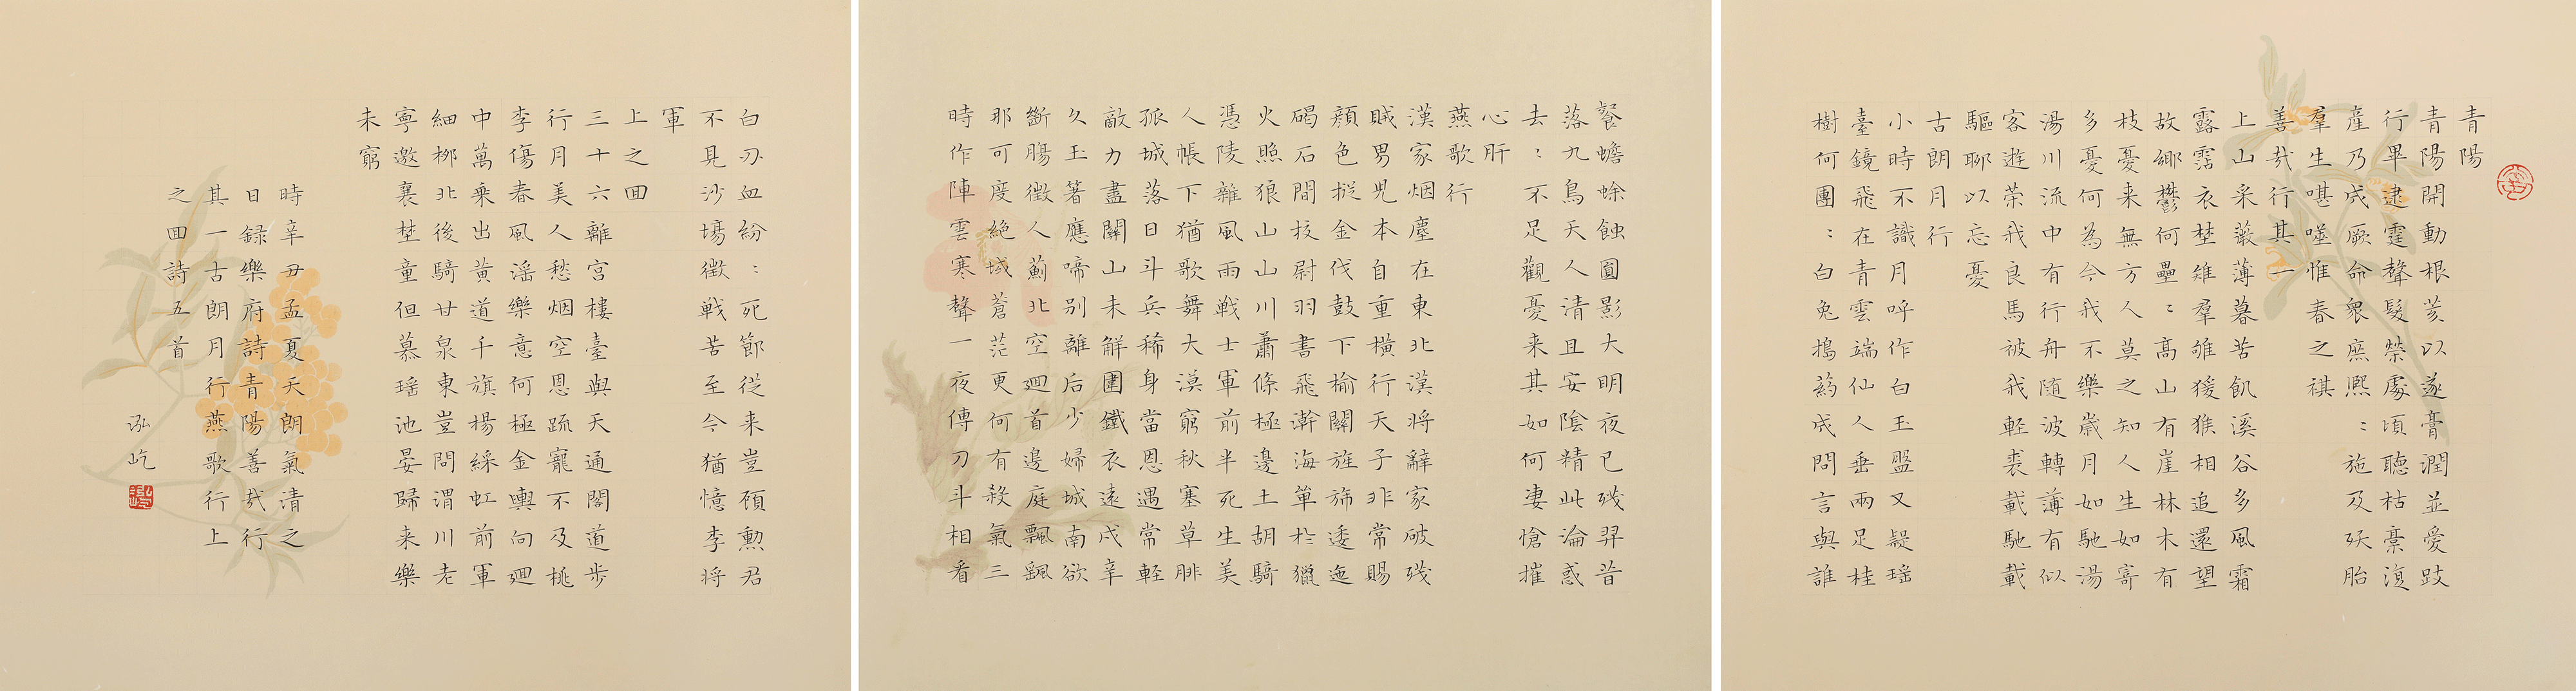 青陽
青陽開動根荄以遂膏潤並愛跂
行畢逮霆聲發榮處頃聽枯槀復
產乃成厥命衆庶熙〻施及夭胎
羣生啿噬惟春之祺
善哉行其一
上山采薇薄暮苦飢溪谷多風霜
露霑衣埜雉羣雊猨猴相追還望
故鄉鬱何壘〻高山有崖林木有
枝憂来無方人莫之知人生如寄
多憂何為今我不樂歲月如馳湯
湯川流中有行舟随波轉薄有似
客遊策我良馬被我軽裘載馳載
驅聊以忘憂
古朗月行
小時不識月呼作白玉盤又疑瑶
臺鏡飛在青雲端仙人垂兩足桂
樹何團〻白兔搗葯成問言與誰
餐蟾蜍蝕圓影大明夜已殘羿昔
落九烏天人清且安陰精此淪惑
去〻不足觀憂来其如何凄愴摧
心肝
燕歌行
漢家烟塵在東北漢將辭家破殘
賊男兒本自重橫行天子非常賜
顔色摐金伐鼓下榆關旌旆逶迤
碣石間校尉羽書飛瀚海單於獵
火照狼山山川蕭條極邊土胡騎
憑陵雜風雨戰士軍前半死生美
人帳下猶歌舞大漠窮秋塞草腓
孤城落日斗兵稀身當恩遇常軽
敵力盡關山未解圍鐵衣遠戍辛
久玉箸應啼别離后少婦城南欲
斷腸徵人薊北空廻首邊庭飄飖
那可度絶域蒼茫更何有殺氣三
時作陣雲寒聲一夜傳刀斗相看
白刃血紛〻死節從来豈頋勲君
不見沙場徵戰苦至今猶憶李將
軍
上之回
三十六離宮樓臺與天通閣道步
行月美人愁烟空恩疏寵不及桃
李傷春風滛樂意何極金輿向廻
中萬乘出黄道千旗楊綵虹前軍
細栁北後騎甘泉東豈問渭川老
寧邀襄埜童但慕瑶池宴歸来樂
未窮
時辛丑孟夏天朗氣清之
日録樂府詩青陽善哉行
其一古朗月行燕歌行上
之回詩五首
泓屹